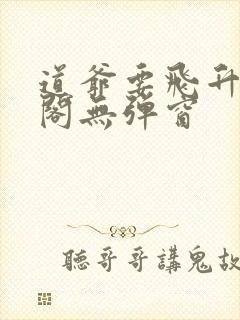 道爺要飛升
閣無彈窗
聽哥哥講鬼故